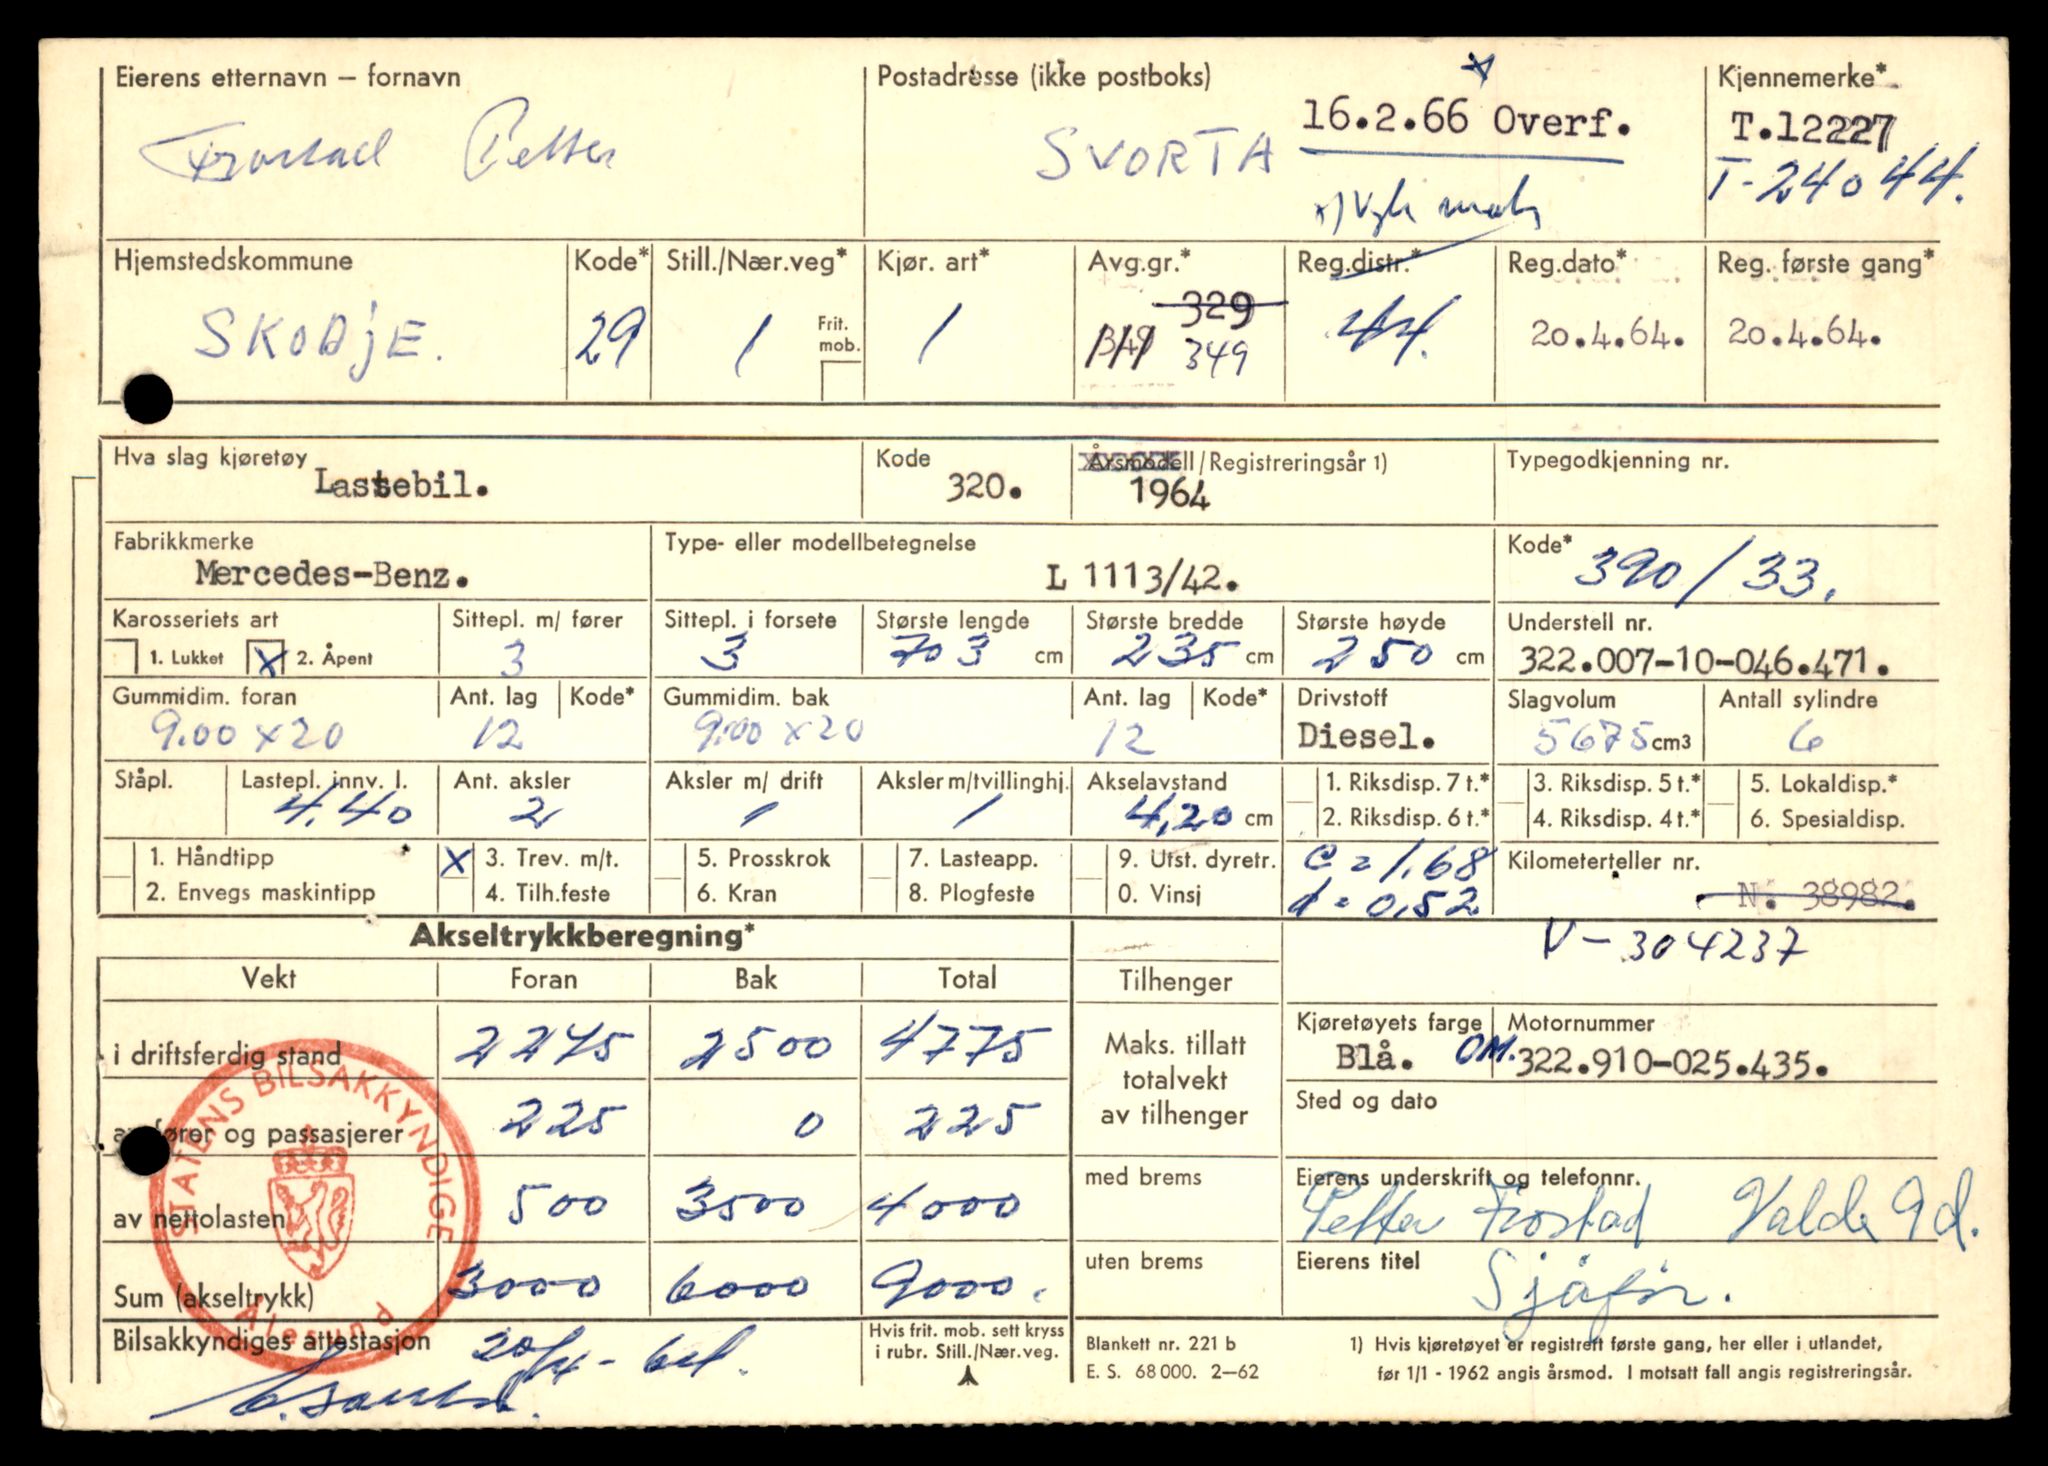 Eierens etternavn – fornavn
Frostad Petter
Postadresse (ikke postboks)
SVORTA
16.2.66 Overf.
Kjennemerke*
T.12227
T-24044.
Hjemstedskommune
SKODJE.
Kode*
29
Still./Nær.veg*
1
Frit. mob.
Kjør. art*
1
Avg.gr.*
329
349
Reg.distr.*
44.
Reg.dato*
20.4.64.
Reg. første gang*
20.4.64.
Hva slag kjøretøy
Lastebil.
Kode
320.
Årsmodell/Registreringsår 1)
1964
Typegodkjenning nr.
Fabrikkmerke
Mercedes-Benz.
Type- eller modellbetegnelse
L 1113/42.
Kode*
390/33.
Karosseriets art
1. Lukket X 2. Åpent
Sittepl. m/ fører
3
Sittepl. i forsete
3
Største lengde
703 cm
Største bredde
235 cm
Største høyde
250 cm
Understell nr.
322.007-10-046.471.
Gummidim. foran
9.00 x 20
Ant. lag
12
Kode*
Gummidim. bak
9.00 x 20
Ant. lag
12
Kode*
Drivstoff
Diesel.
Slagvolum
5675 cm3
Antall sylindre
6
Ståpl.
Lastepl. innv. l.
4.40
Ant. aksler
2
Aksler m/ drift
1
Aksler m/tvillinghj.
1
Akselavstand
4,20 cm
1. Riksdisp. 7 t.*
2. Riksdisp. 6 t.*
3. Riksdisp. 5 t.*
4. Riksdisp. 4 t.*
5. Lokaldisp.*
6. Spesialdisp.
1. Håndtipp
2. Envegs maskintipp
X 3. Trev. m/t.
4. Tilh.feste
5. Prosskrok
6. Kran
7. Lasteapp.
8. Plogfeste
9. Utst. dyretr.
0. Vinsj
c = 1.68
d = 0,52
Kilometerteller nr.
N. 38982.
V-304237
Akseltrykkberegning*
Vekt Foran Bak Total
i driftsferdig stand 2275 2500 4775
av fører og passasjerer 225 0 225
av nettolasten 500 3500 4000
Sum (akseltrykk) 3000 6000 9000.
Tilhenger
Maks. tillatt
totalvekt
av tilhenger
med brems
uten brems
Kjøretøyets farge
Blå.
Motornummer
OM. 322.910-025.435.
Sted og dato
Eierens underskrift og telefonnr.
Petter Frostad Valde 9d.
Eierens titel
Sjåfør.
STATENS BILSAKKYNDIGE
Ålesund
Bilsakkyndiges attestasjon
20/4-64.
Hvis frit. mob. sett kryss
i rubr. Still./Nær.veg.
Blankett nr. 221 b
E. S. 68 000. 2–62
1) Hvis kjøretøyet er registrert første gang, her eller i utlandet,
før 1/1 - 1962 angis årsmod. I motsatt fall angis registreringsår.